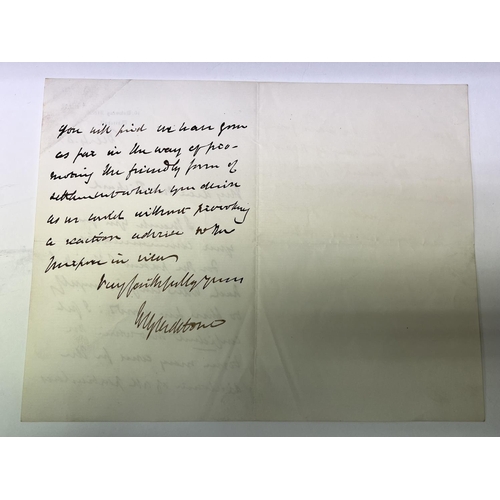 you will find we have gone
as far in the way of pro-
moting the friendly form of
settlement which you desire
as we could without provoking
a reaction adverse to the
purpose in view
Very faithfully yours
WEGladstone